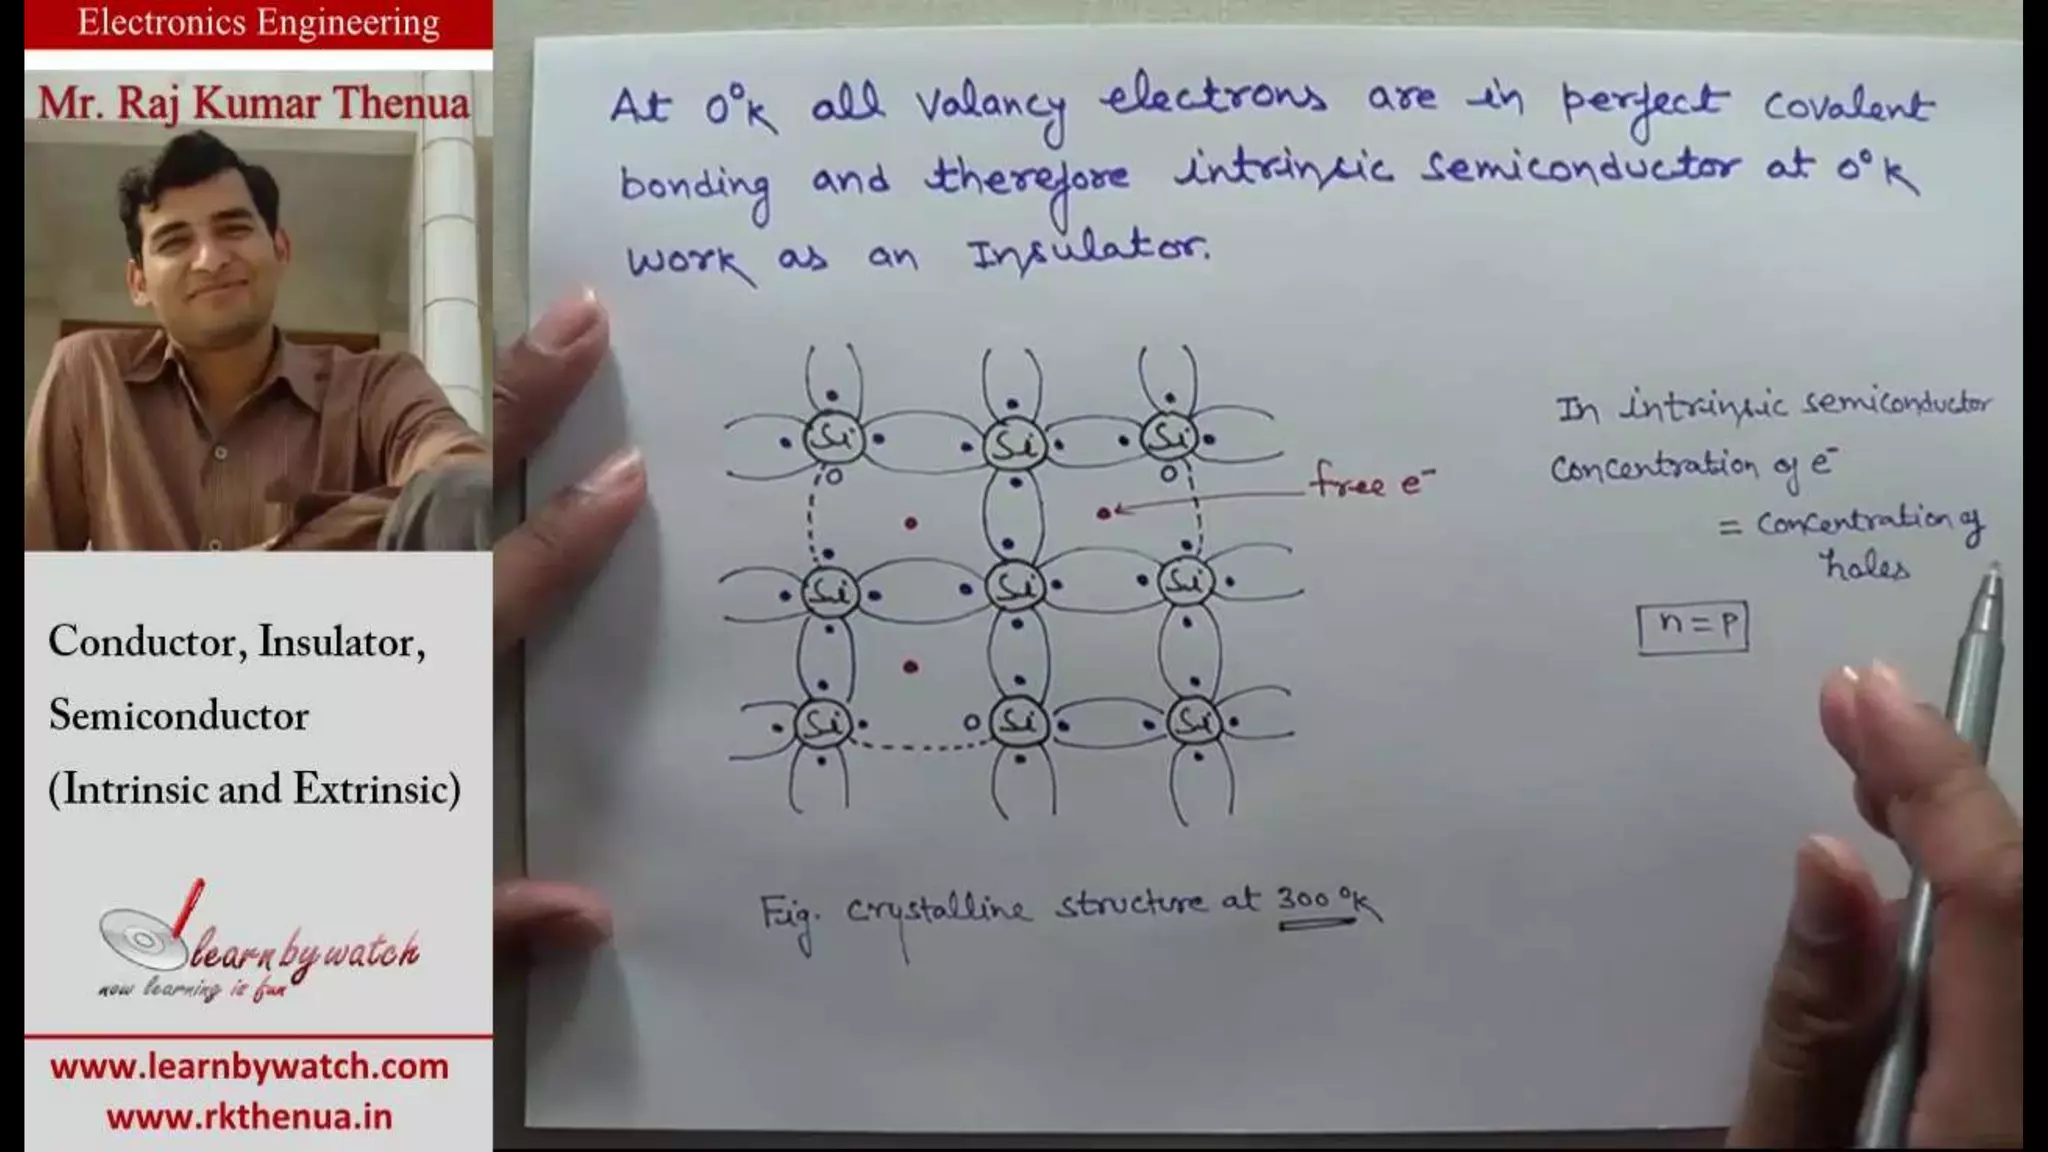 Electronics Engineering
Mr. Raj Kumar Thenua
Conductor, Insulator,
Semiconductor
(Intrinsic and Extrinsic)
learnbywatch
now learning is fun
www.learnbywatch.com
www.rkthenua.in
At 0°K all Valancy electrons are in perfect covalent
bonding and therefore intrinsic semiconductor at 0°K
work as an Insulator.
Si Si Si
free e⁻
Si Si Si
Si Si Si
Fig. crystalline structure at 300°K
In intrinsic semiconductor
concentration of e⁻
= concentration of
holes
n = p